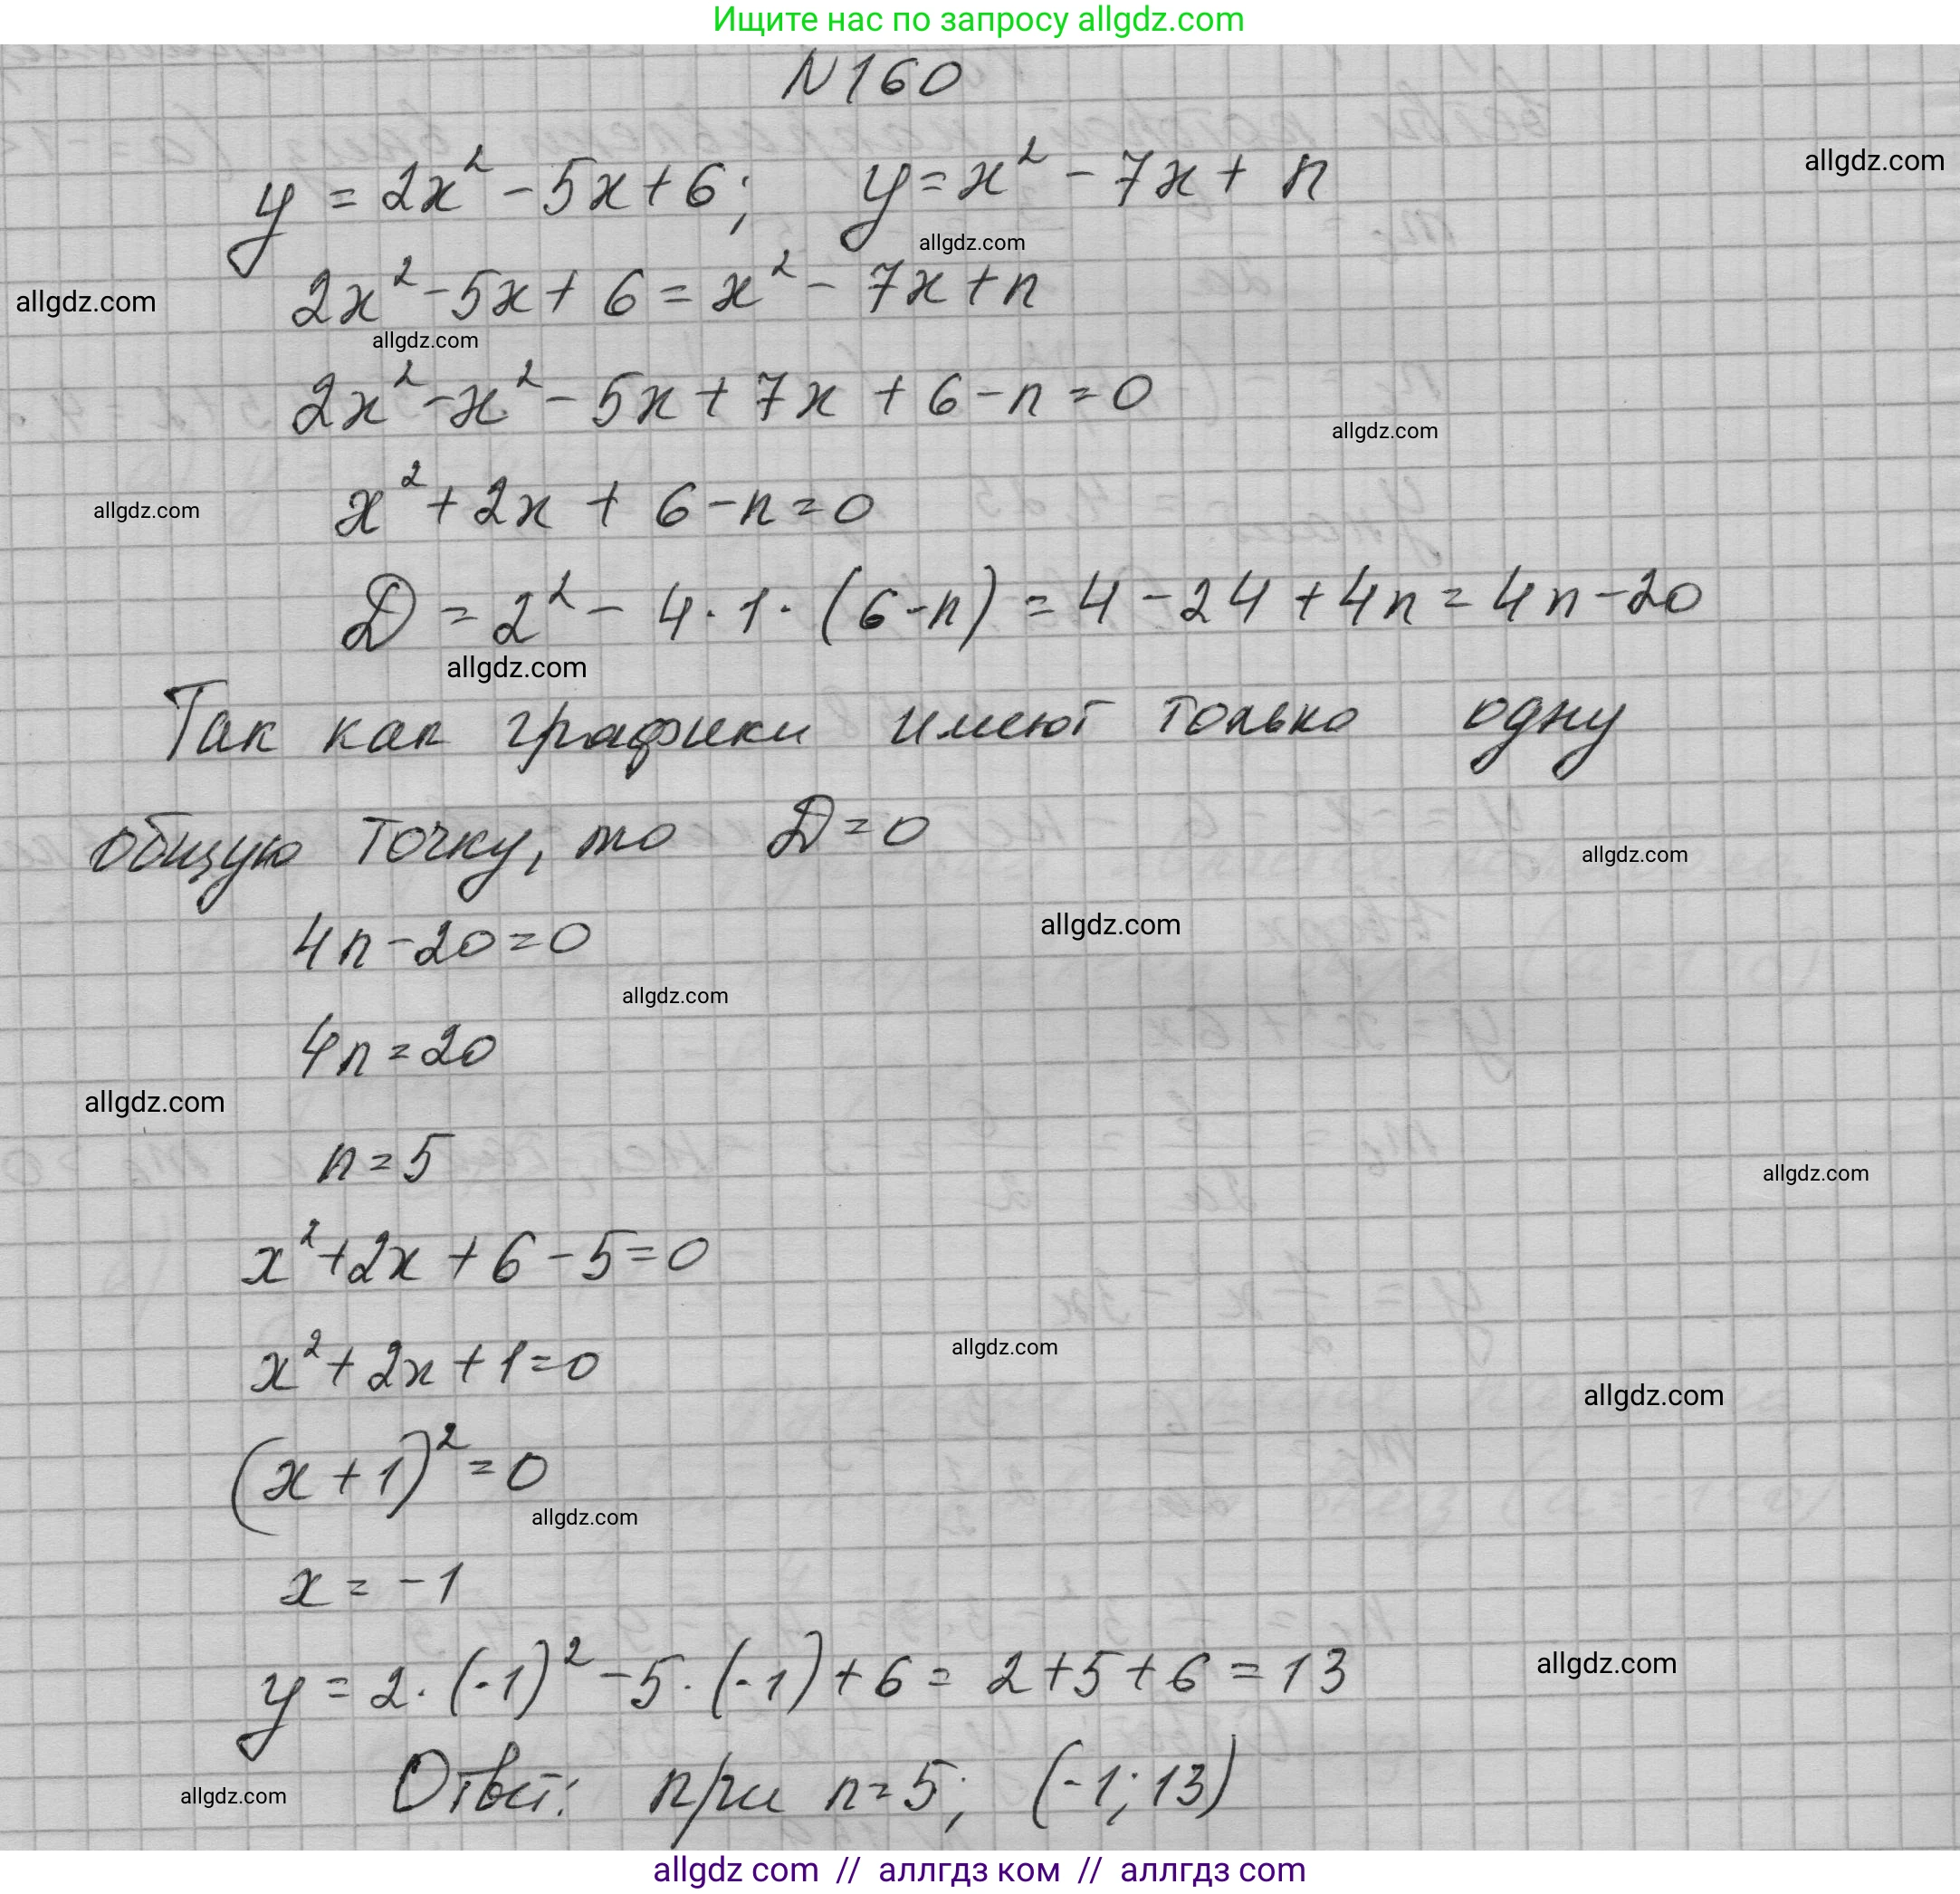 Ищите нас по запросу allgdz.com
N160
allgdz.com
y = 2x² - 5x + 6; y = x² - 7x + n
allgdz.com
2x² - 5x + 6 = x² - 7x + n
allgdz.com
allgdz.com
2x² - x² - 5x + 7x + 6 - n = 0
allgdz.com
x² + 2x + 6 - n = 0
allgdz.com
D = 2² - 4 · 1 · (6 - n) = 4 - 24 + 4n = 4n - 20
allgdz.com
Так как графики имеют только одну
общую точку, то D = 0
allgdz.com
allgdz.com
4n - 20 = 0
allgdz.com
4n = 20
allgdz.com
n = 5
allgdz.com
x² + 2x + 6 - 5 = 0
allgdz.com
x² + 2x + 1 = 0
allgdz.com
(x + 1)² = 0
allgdz.com
x = -1
allgdz.com
y = 2 · (-1)² - 5 · (-1) + 6 = 2 + 5 + 6 = 13
allgdz.com
Ответ: при n = 5; (-1; 13)
allgdz com // аллгдз ком // аллгдз com